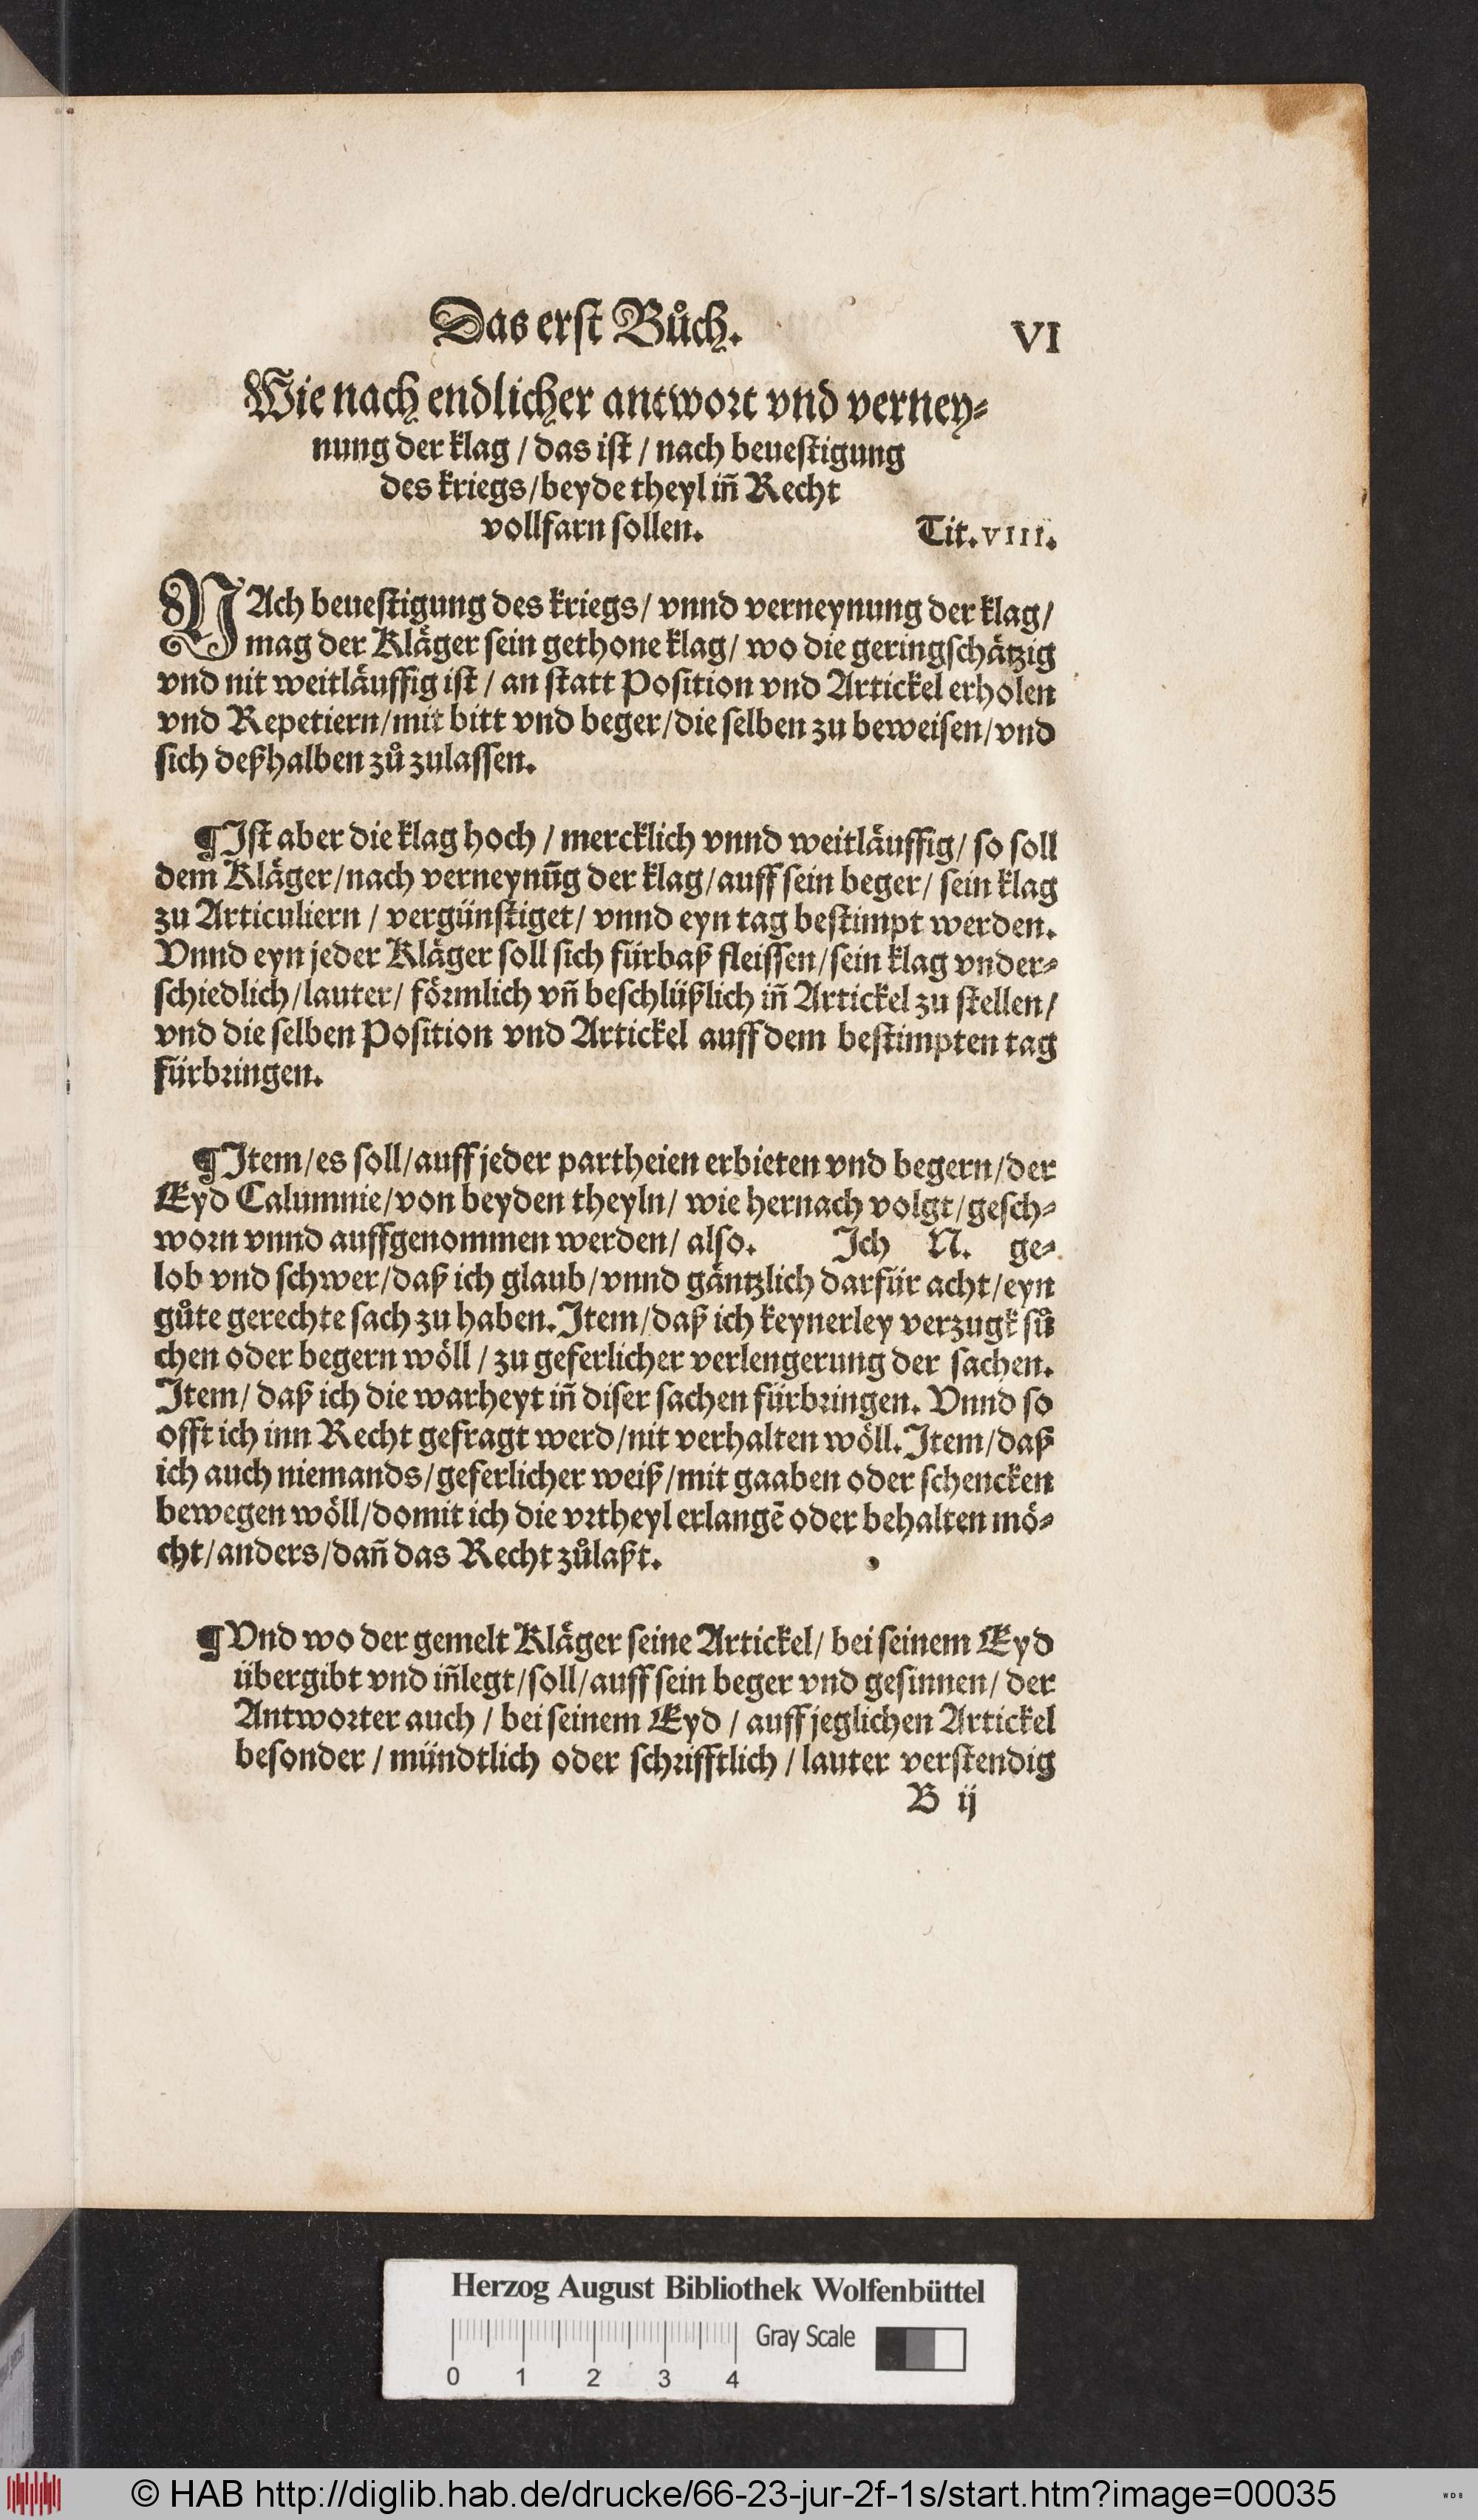 Das erst Bůch. VI
Wie nach endlicher antwort vnd verney-
nung der klag / das ist / nach beuestigung
des kriegs / beyde theyl iñ Recht
vollfarn sollen. Tit. VIII.
NAch beuestigung des kriegs / vnnd verneynung der klag /
mag der Kläger sein gethone klag / wo die geringschätzig
vnd nit weitläuffig ist / an statt Position vnd Artickel erholen
vnd Repetiern / mit bitt vnd beger / die selben zu beweisen / vnd
sich deßhalben zů zulassen.
¶ Ist aber die klag hoch / mercklich vnnd weitläuffig / so soll
dem Kläger / nach verneynūg der klag / auff sein beger / sein klag
zu Articuliern / vergünstiget / vnnd eyn tag bestimpt werden.
Vnnd eyn jeder Kläger soll sich fürbaß fleissen / sein klag vnder-
schiedlich / lauter / förmlich vñ beschlüßlich iñ Artickel zu stellen /
vnd die selben Position vnd Artickel auff dem bestimpten tag
fürbringen.
¶ Item / es soll / auff jeder partheien erbieten vnd begern / der
Eyd Calumnie / von beyden theyln / wie hernach volgt / gesch-
worn vnnd auffgenommen werden / also. Ich N. ge-
lob vnd schwer / daß ich glaub / vnnd gäntzlich darfür acht / eyn
gůte gerechte sach zu haben. Item / daß ich keynerley verzugk sů
chen oder begern wöll / zu geferlicher verlengerung der sachen.
Item / daß ich die warheyt iñ diser sachen fürbringen. Vnnd so
offt ich inn Recht gefragt werd / nit verhalten wöll. Item / daß
ich auch niemands / geferlicher weiß / mit gaaben oder schencken
bewegen wöll / domit ich die vrtheyl erlangē oder behalten mö-
cht / anders / dañ das Recht zůlaßt.
¶ Vnd wo der gemelt Kläger seine Artickel / bei seinem Eyd
übergibt vnd iñlegt / soll / auff sein beger vnd gesinnen / der
Antworter auch / bei seinem Eyd / auff jeglichen Artickel
besonder / mündtlich oder schrifftlich / lauter verstendig
B ij
Herzog August Bibliothek Wolfenbüttel
Gray Scale
0 1 2 3 4
© HAB http://diglib.hab.de/drucke/66-23-jur-2f-1s/start.htm?image=00035
WDB